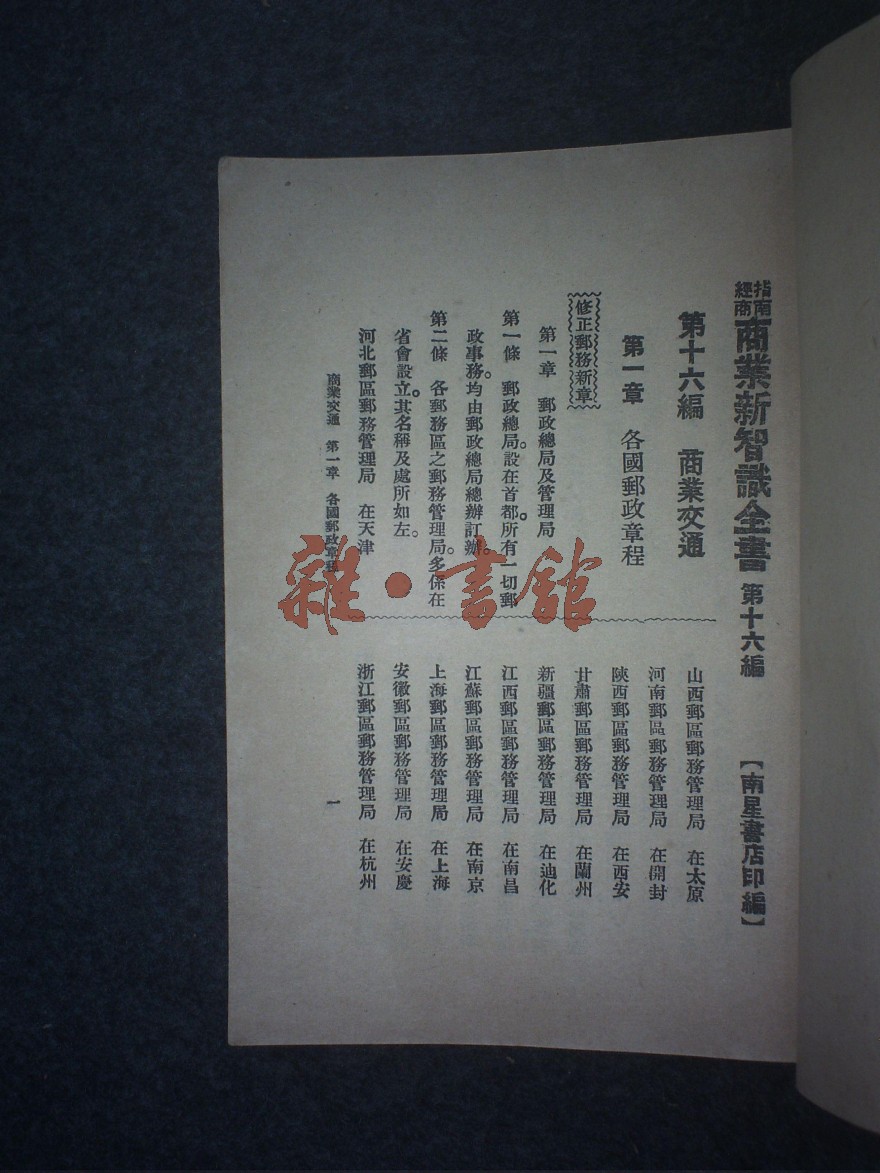 經商指南商業新智識全書 第十六編 【南星書店印編】
第十六編 商業交通
第一章 各國郵政章程
修正郵務新章
第一章 郵政總局及管理局
第一條 郵政總局。設在首都。所有一切郵
政事務。均由郵政總局總辦訂辦。
第二條 各郵務區之郵務管理局。多係在
省會設立。其名稱及處所如左。
河北郵區郵務管理局 在天津
山西郵區郵務管理局 在太原
河南郵區郵務管理局 在開封
陝西郵區郵務管理局 在西安
甘肅郵區郵務管理局 在蘭州
新疆郵區郵務管理局 在迪化
江西郵區郵務管理局 在南昌
江蘇郵區郵務管理局 在南京
上海郵區郵務管理局 在上海
安徽郵區郵務管理局 在安慶
浙江郵區郵務管理局 在杭州
商業交通 第一章 各國郵政章程
一
雜·書館